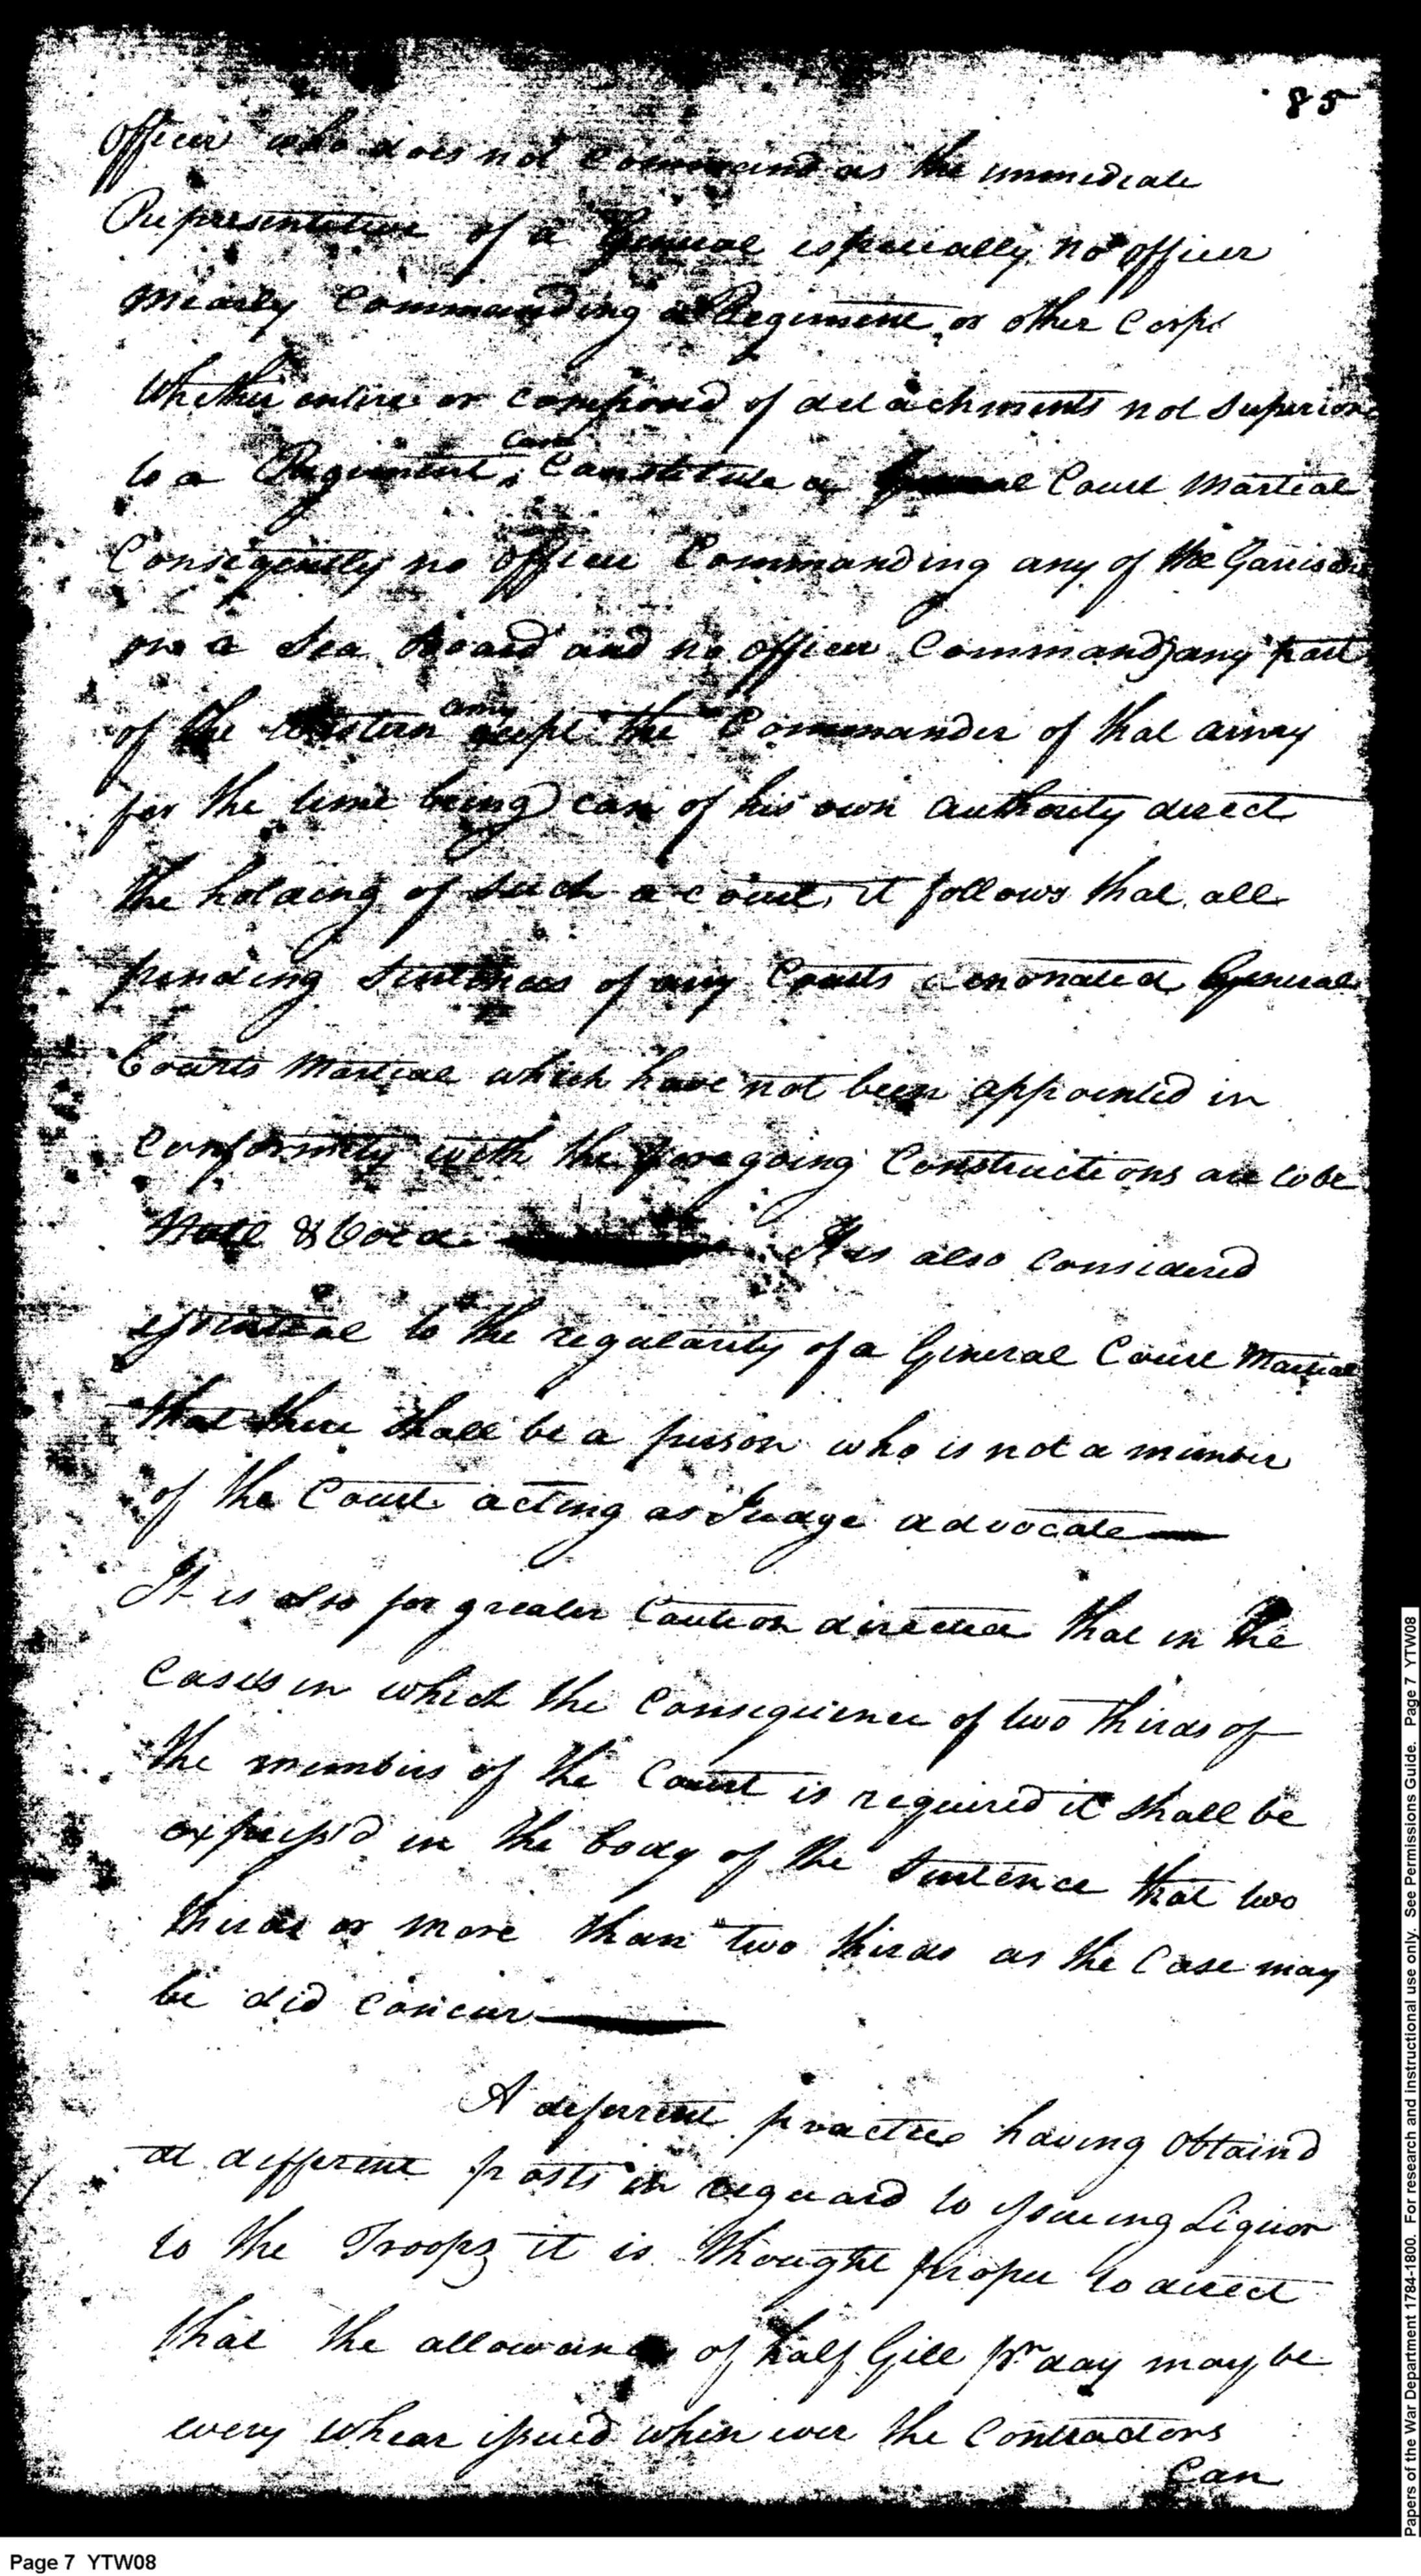 85
Officer who does not Command as the immediate
Representative of a General especially no officer
Mearly Commanding a Regiment or other Corps
Whether entire or composed of detachments not Superior
to a Regiment, Can Constitute a General Court Martial
Conseqently no officer Commanding any of the Garrisons
on a Sea Board and no officer Commandg any part
of the Western army except the Commander of that army
for the time being) can of his own authority direct
the holding of such a court, it follows that all
pending Sentences of any Courts denonated General
Courts Martial which have not been appointed in
Conformity with the foregoing Constructions are to be
Null & Void It is also Considered
essential to the regularity of a General Court Martial
that there shall be a person who is not a member
of the Court acting as Judge advocate
It is also for greater Caution directed that in the
Cases in which the Consequence of two thirds of
the members of the Court is required it shall be
express'd in the body of the Sentence that two
thirds or more than two thirds as the Case may
be did Concur
A deferrent practice having Obtaind
at different posts in reguard to issueing Liquor
to the Troops it is thought proper to direct
that the allowance of half Gill pr day may be
every whear issued when ever the Contractors
Can
Page 7 YTW08
Papers of the War Department 1784-1800. For research and instructional use only. See Permissions Guide. Page 7 YTW08